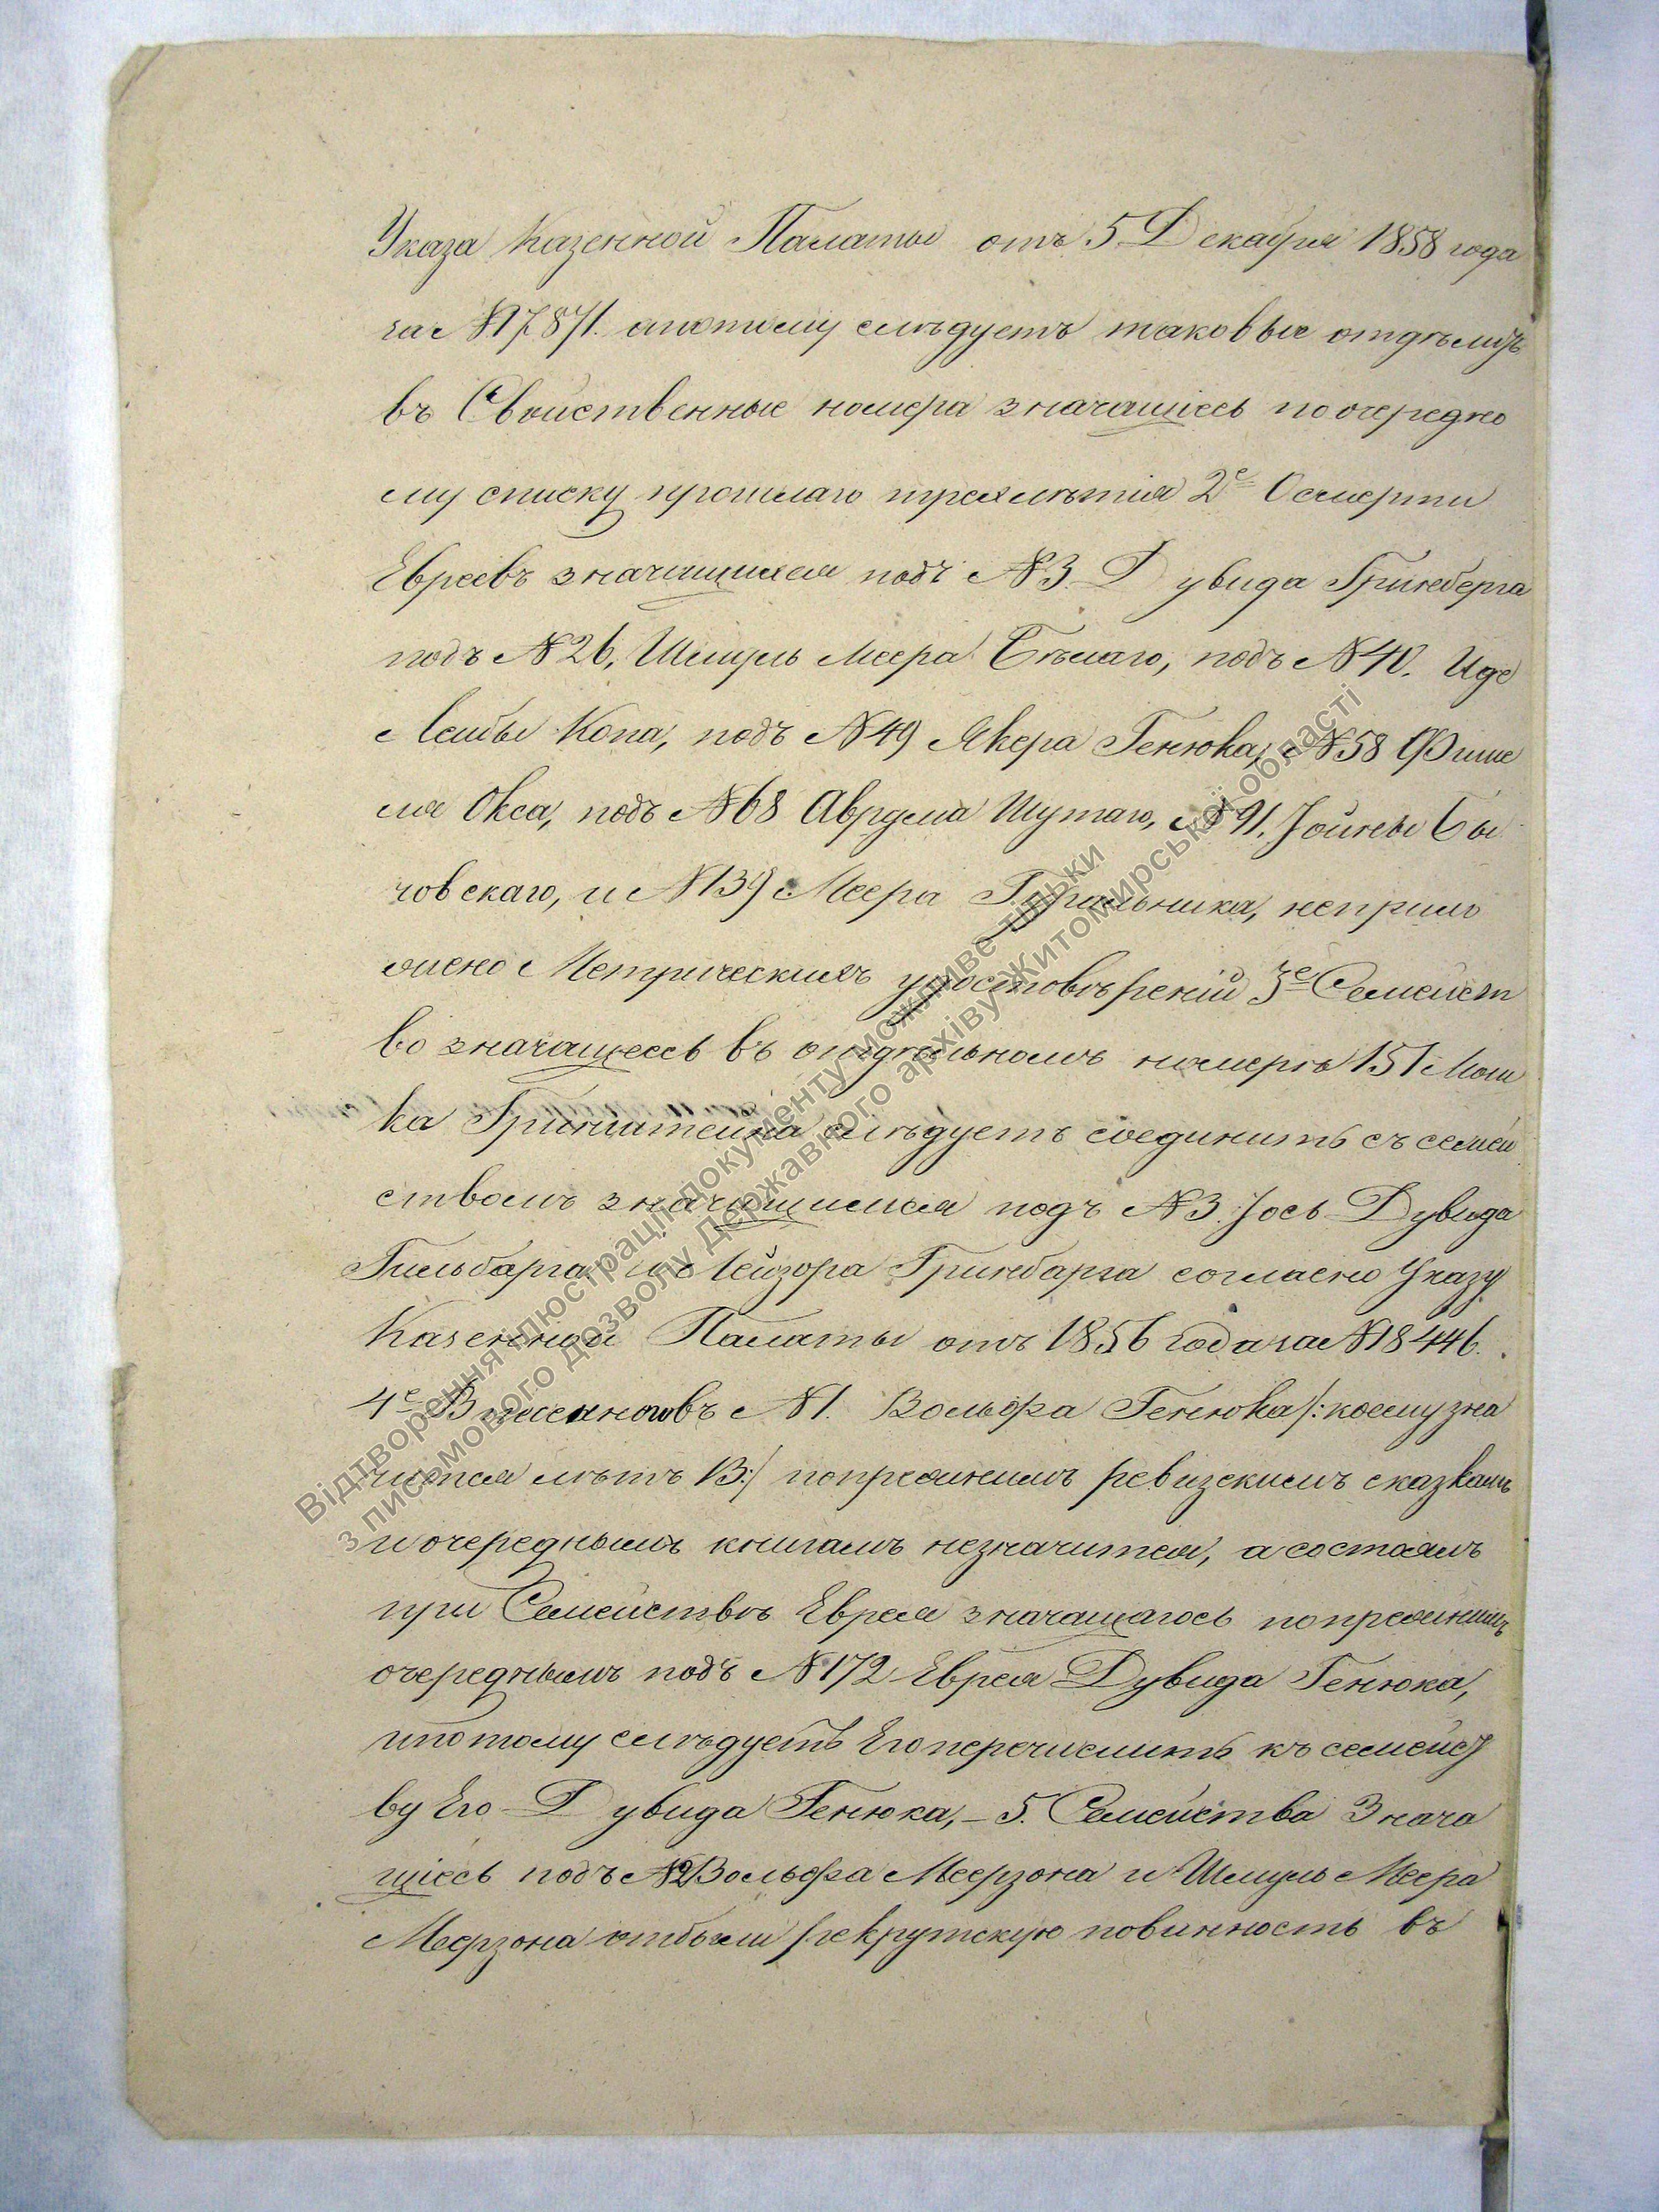 Указа Казенной Палаты отъ 5 Декабря 1858 года
за № 17871. апотому слѣдуетъ таковые отдѣлить
въ Свойственные номера значащіесь поочередно
му списку прошлаго трехлѣтія 2е
Евреевъ значащихся подъ № 3. Дувида Гринберга
подъ № 26, Шмуль Меера Бѣлаго, подъ № 40. Иде
Лейбы Копа, подъ № 49 Якера Генюка, № 58 Фише
ля Окса, подъ № 68 Аврума Шутаго, № 91. Іойны Бы
човскаго, и № 139 Меера неприло
жено Метрическихъ удостовѣреній 3е Семейст
во значащеесь въ отдѣльномъ номерѣ 151 Мош
ка Гринштейна слѣдуетъ соединить съ семей
ствомъ значащимся подъ № 3. Іось Дувида
Гильбарга Лейзора Гринбарга согласно Указу
Казенной Палаты отъ 1856 года за № 18446.
4е № 1. Вольфа Генюка /: коему зна
чится лѣтъ 13:/ попрежнимъ ревизскимъ сказкамъ
и очереднымъ книгамъ незначится, а состоялъ
при Семействѣ Еврея значащагось попрежнимъ
очереднымъ подъ № 172 Еврея Дувида Генюка,
ипотому слѣдуетъ Его перечислить къ семейст
ву Его Дувида Генюка, – 5. Семейства Знача
щіесь подъ № 2 Вольфа Меерзона и Шмуль Меера
Меерзона отбыли рекрутскую повинность въ
Відтворення ілюстрації документу можливе тільки
з письмового дозволу Державного архіву Житомирської області